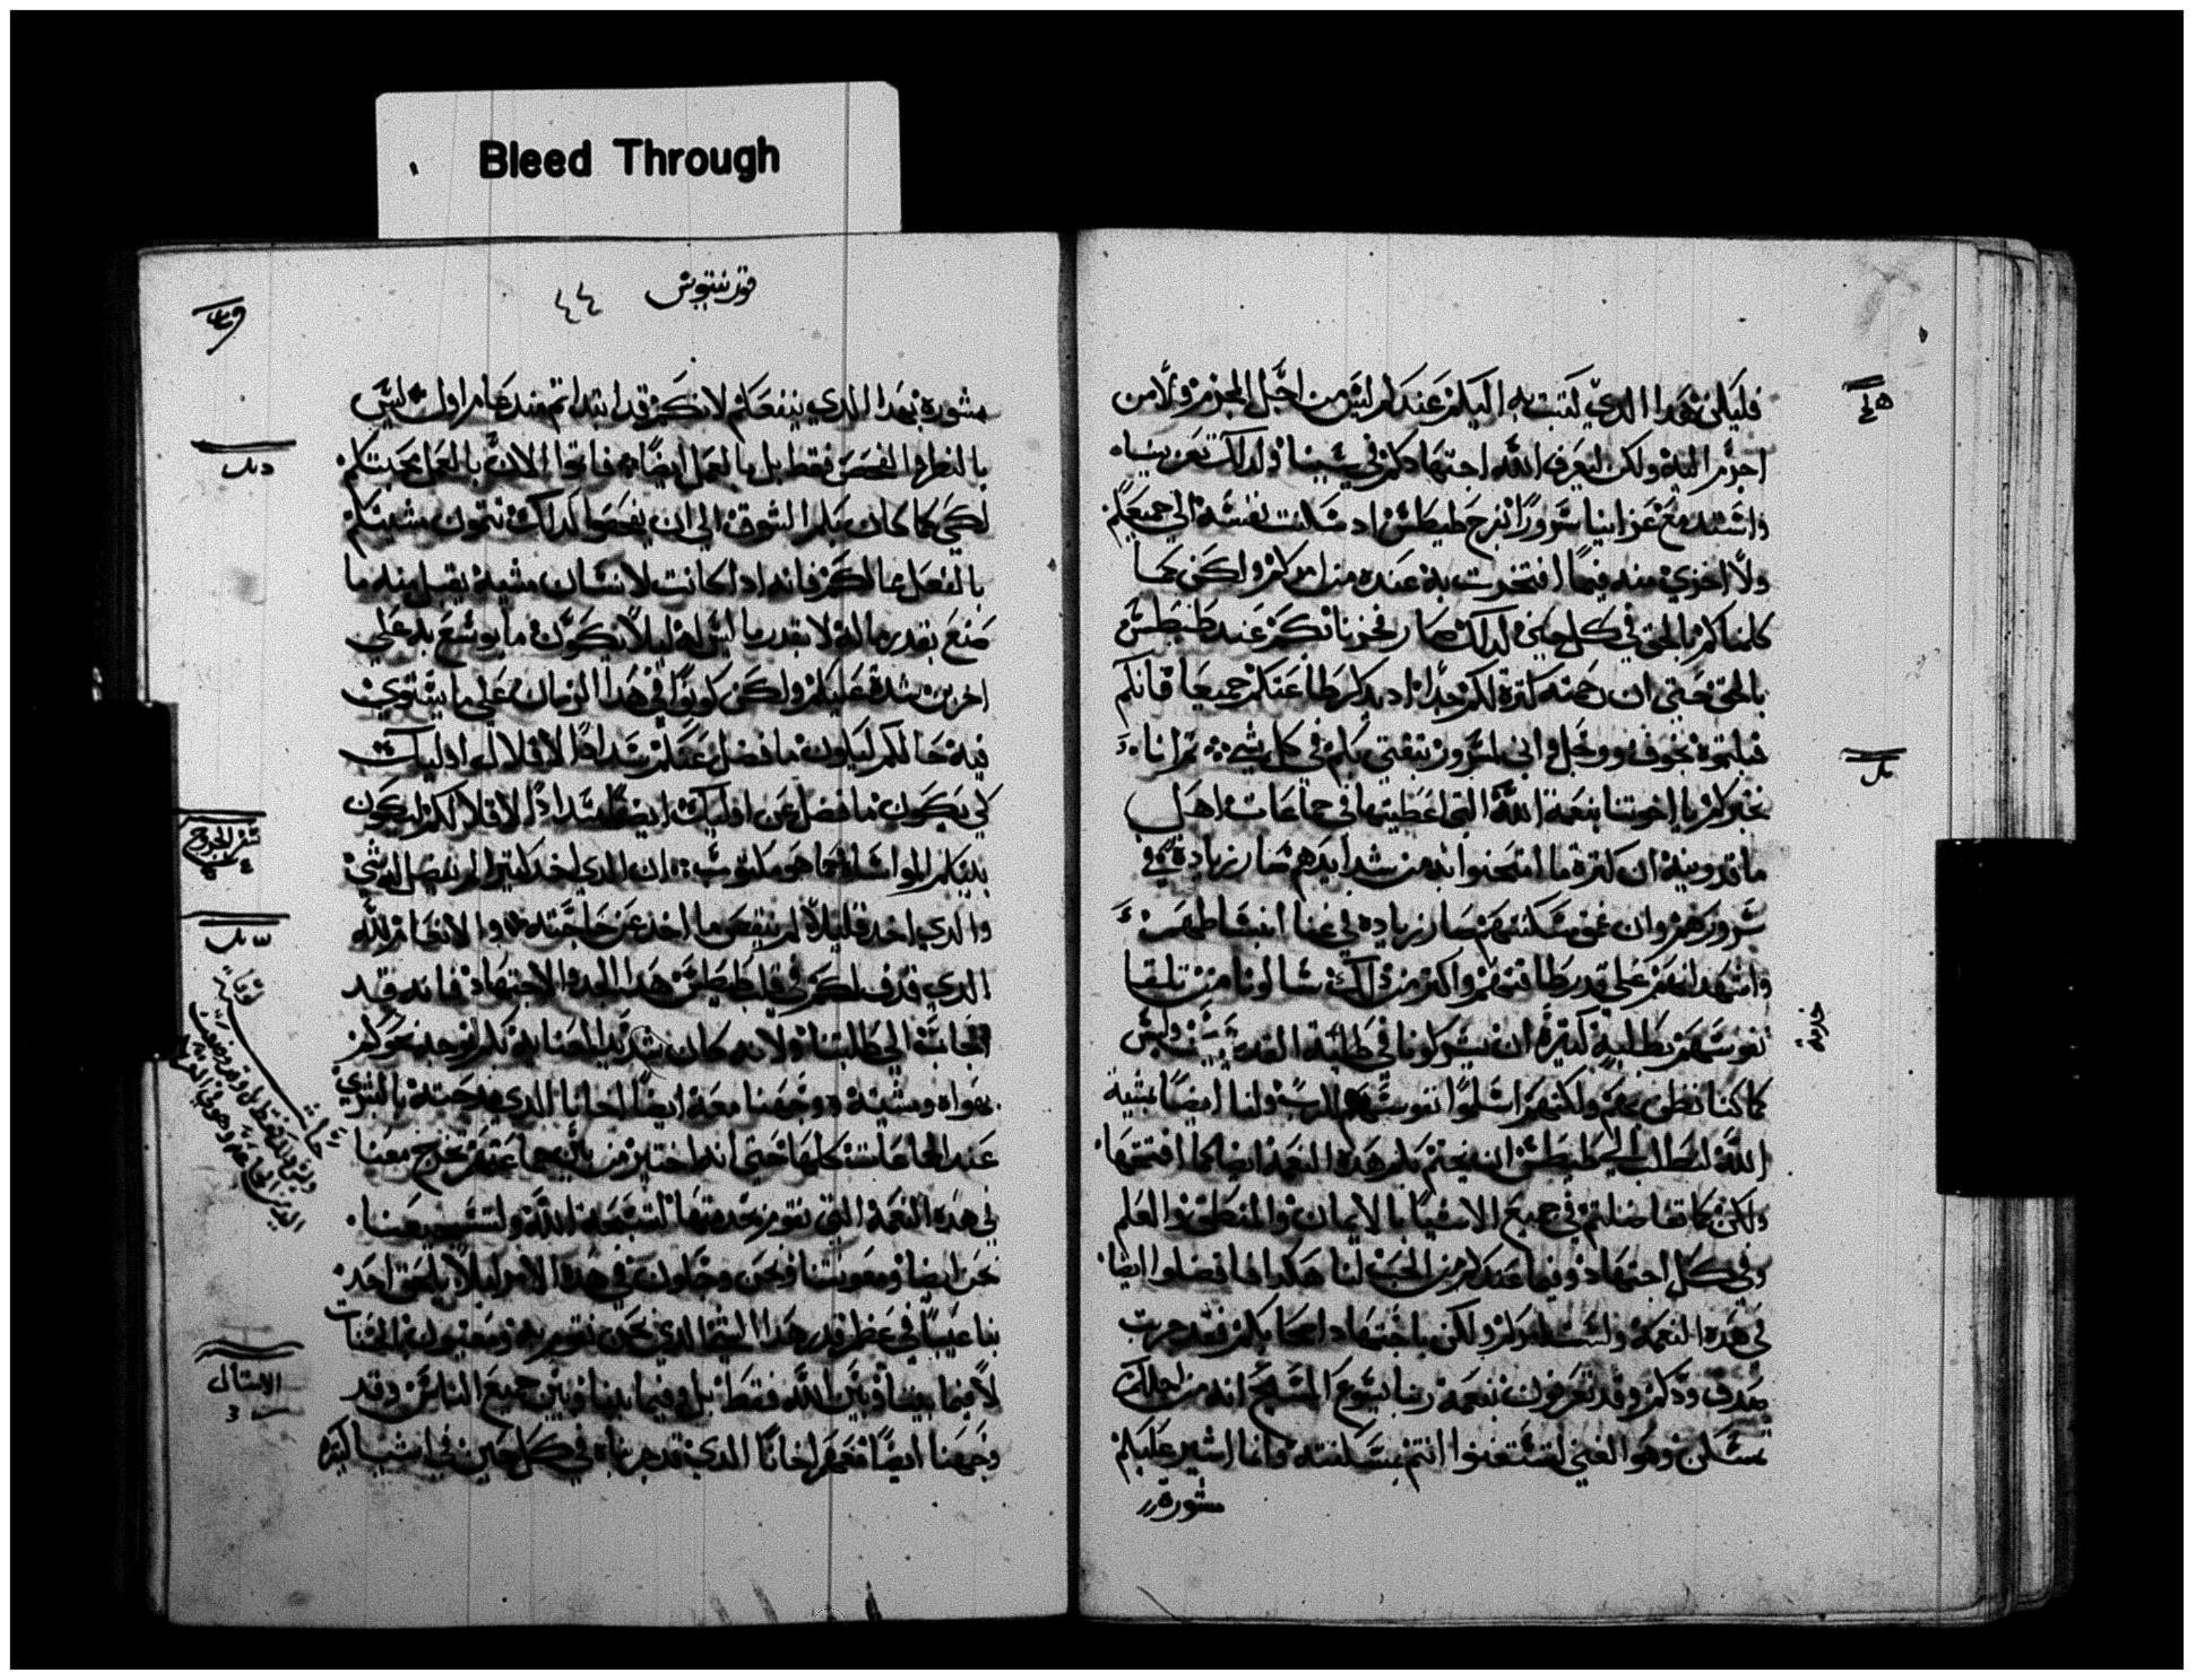 Bleed Through
فليكن هدا الدي كتبت به اليكم عندكم ليس من اجل المجرم ولا من
اجرم اليه ولكن ليعرف الله اجتهادكم في سببنا ولدلك تعزينا
واشتد مع عزاينا سرورًا بفرح طيطس اد سكنت نفسه الي جميعكم
ولا اخزي منه فيما افتخرت به عنده من امركم ولكن كما
كلمناكم بالحق في كل حين لدلك صار فخرنا بكم عند طيطس
بالحق حتي ان رحمته كترة لكم جدًا اد يدكر طاعتكم جميعا فانكم
قبلتموه بخوف ووجل واني لمسرور بتقتي بكم في كل شي ثم انا
نخبركم يا اخوتنا بنعمة الله التي اعطيتها في جماعات اهل
ماقدونية ان كترة ما امتحنوا به من شدايدهم صار زيادة في
سرورهم وان عمق مسكنتهم صار زيادة في غنا انبساطهم
واشهد لهم علي قدر طاقتهم واكتر من دلك سالونا من تلقا
نفوسهم بطلبة كتيرة ان يشركونا في طلبة القديسين وليس
كما كنا نظن بهم ولكنهم اسلموا نفوسهم للرب ولنا ايضًا بمشية
الله لنطلب الي طيطس ان يختم بكم هده النعمة ايضا كما افتتحها
ولكن كما تفاضلتم في جميع الاشيا بالايمان والمنطق والعلم
وفي كل اجتهاد وفيما عندكم من الحب لنا هكدا فافضلوا ايضا
في هده النعمة ولست امركم ولكن باجتهاد اصحابكم فقد جربت
صدق ودكم وقد تعرفون نعمة ربنا يسوع المسيح انه من اجلكم
تمسكن وهو الغني لتستغنوا انتم بمسكنته وانما اشير عليكم
مشورة
حزمة
قورنتيوس ٤٤
مشورة بهدا الدي ينفعكم لانكم قد ابتداتم مند عام اول ليس
بالنظر والفحص فقط بل بالعمل ايضًا فاتموا الان بالعمل محبتكم
لكي كما كان بكم الشوق الي ان تفعلوا كدلك تتمون مشيتكم
بالفعل مما لكم فانه ادا كانت لانسان مشية يقبل منه ما
صنع بقدر ما له لا بقدر ما ليس له ليلا يكون ما يوسع به علي
اخرين شدة عليكم ولكن كونوا في هدا الزمان علي ما يستوي
فيه حالكم ليكون ما فضل عنكم سدادًا لاقلال اوليك
كي يكون ما فضل عن اوليك ايضًا سدادًا لاقلالكم ليكون
بينكم المواساة كما هو مكتوب ان الدي اخد كتيرا لم يفضل له شي
والدي اخد قليلا لم ينقص ما اخد عن حاجته والانعام لله
الدي قدف لكم في قلب طيطس هدا الجد والاجتهاد فانه قد
اجاب الي طلبتنا ولانه كان شديد العناية بكم توجه نحوكم
بهواه ومشيته ووجهنا معه ايضًا اخانا الدي مدحته بالبشري
عند الجماعات كلها حتي انه اختير من بين جماعتهم يخرج معنا
في هده النعمة التي نقوم بخدمتها لتسبحة الله ولتشجيعنا
نحن ايضا ومعونتنا ونحن وجلون في هده الامر ليلا يلحق احد
بنا عيبًا في عظم قدر هدا الشي الدي نحن نقوم به ومعنيون بالحسنات
لا فيما بيننا وبين الله فقط بل وفيما بيننا وبين جميع الناس وقد
وجهنا ايضًا معهم اخانا الدي قد جربناه في كل حين في اشيا كتيرة
سفر الخروج
الابستالس